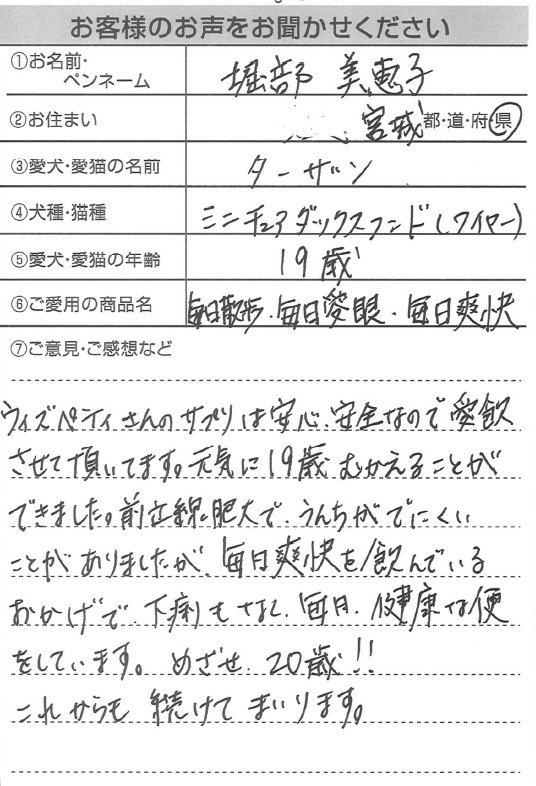 お客様のお声をお聞かせください
①お名前・ペンネーム 堀部 美恵子
②お住まい 宮城 都・道・府・県
③愛犬・愛猫の名前 ターザン
④犬種・猫種 ミニチュアダックスフンド(ワイヤー)
⑤愛犬・愛猫の年齢 19歳
⑥ご愛用の商品名 毎日散歩、毎日愛眼、毎日爽快
⑦ご意見・ご感想など
ウィズペティさんのサプリは安心、安全なので愛飲
させて頂いてます。元気に19歳むかえることが
できました。前立線肥大で、うんちがでにくい
ことがありましたが、毎日爽快を飲んでいる
おかげで、下痢もなく、毎日、健康な便
をしています。めざせ、20歳!!
これからも続けてまいります。